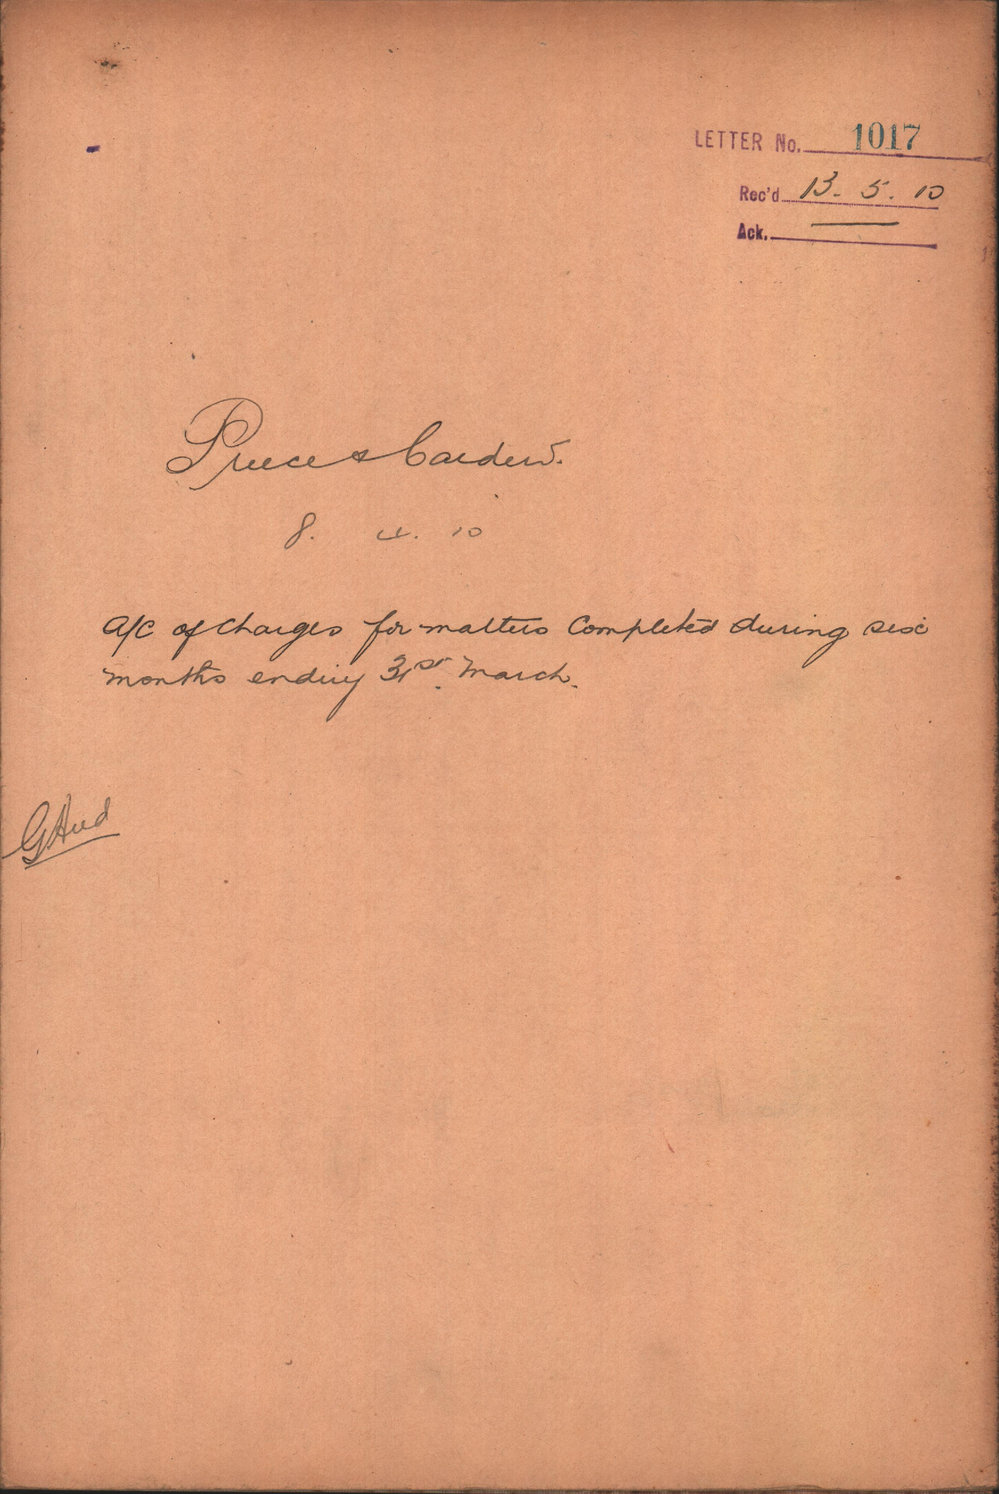 LETTER No. 1017
Rec'd 13. 5. 10
Ack. —
Preece & Cardew.
8. 4. 10
A/C of Charges for matters Completed during six
months ending 31st. March.